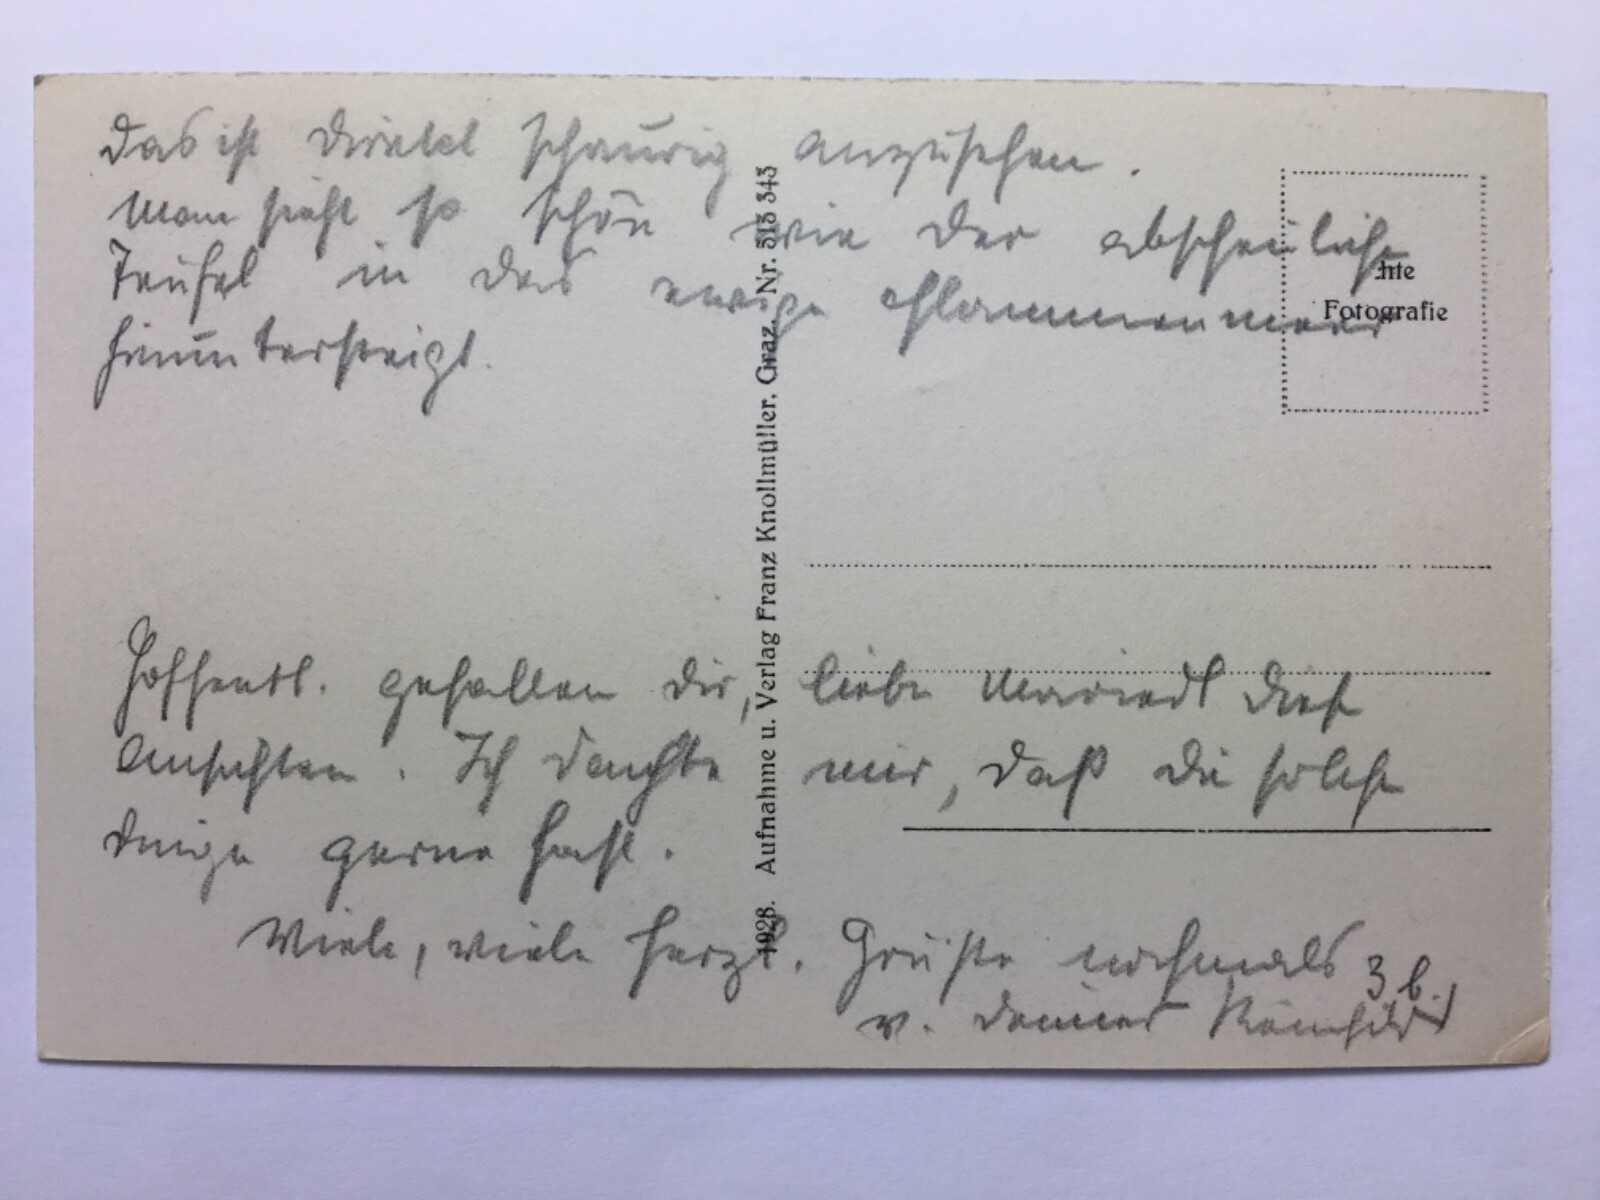 Das ist direkt schaurig anzusehen.
Man sieht so schön wie der abscheuliche
Teufel in das ewige Flammenmeer
hinuntersteigt.
hte
Fotografie
1928. Aufnahme u. Verlag Franz Knollmüller, Graz. Nr. 513 343
Hoffentl. gefallen dir, liebe Mariedl diese
Ansichten. Ich dachte mir, daß du solche
Dinge gerne hast.
Viele, viele herzl. Grüße nochmals
v. deiner Reinhild
3 b.